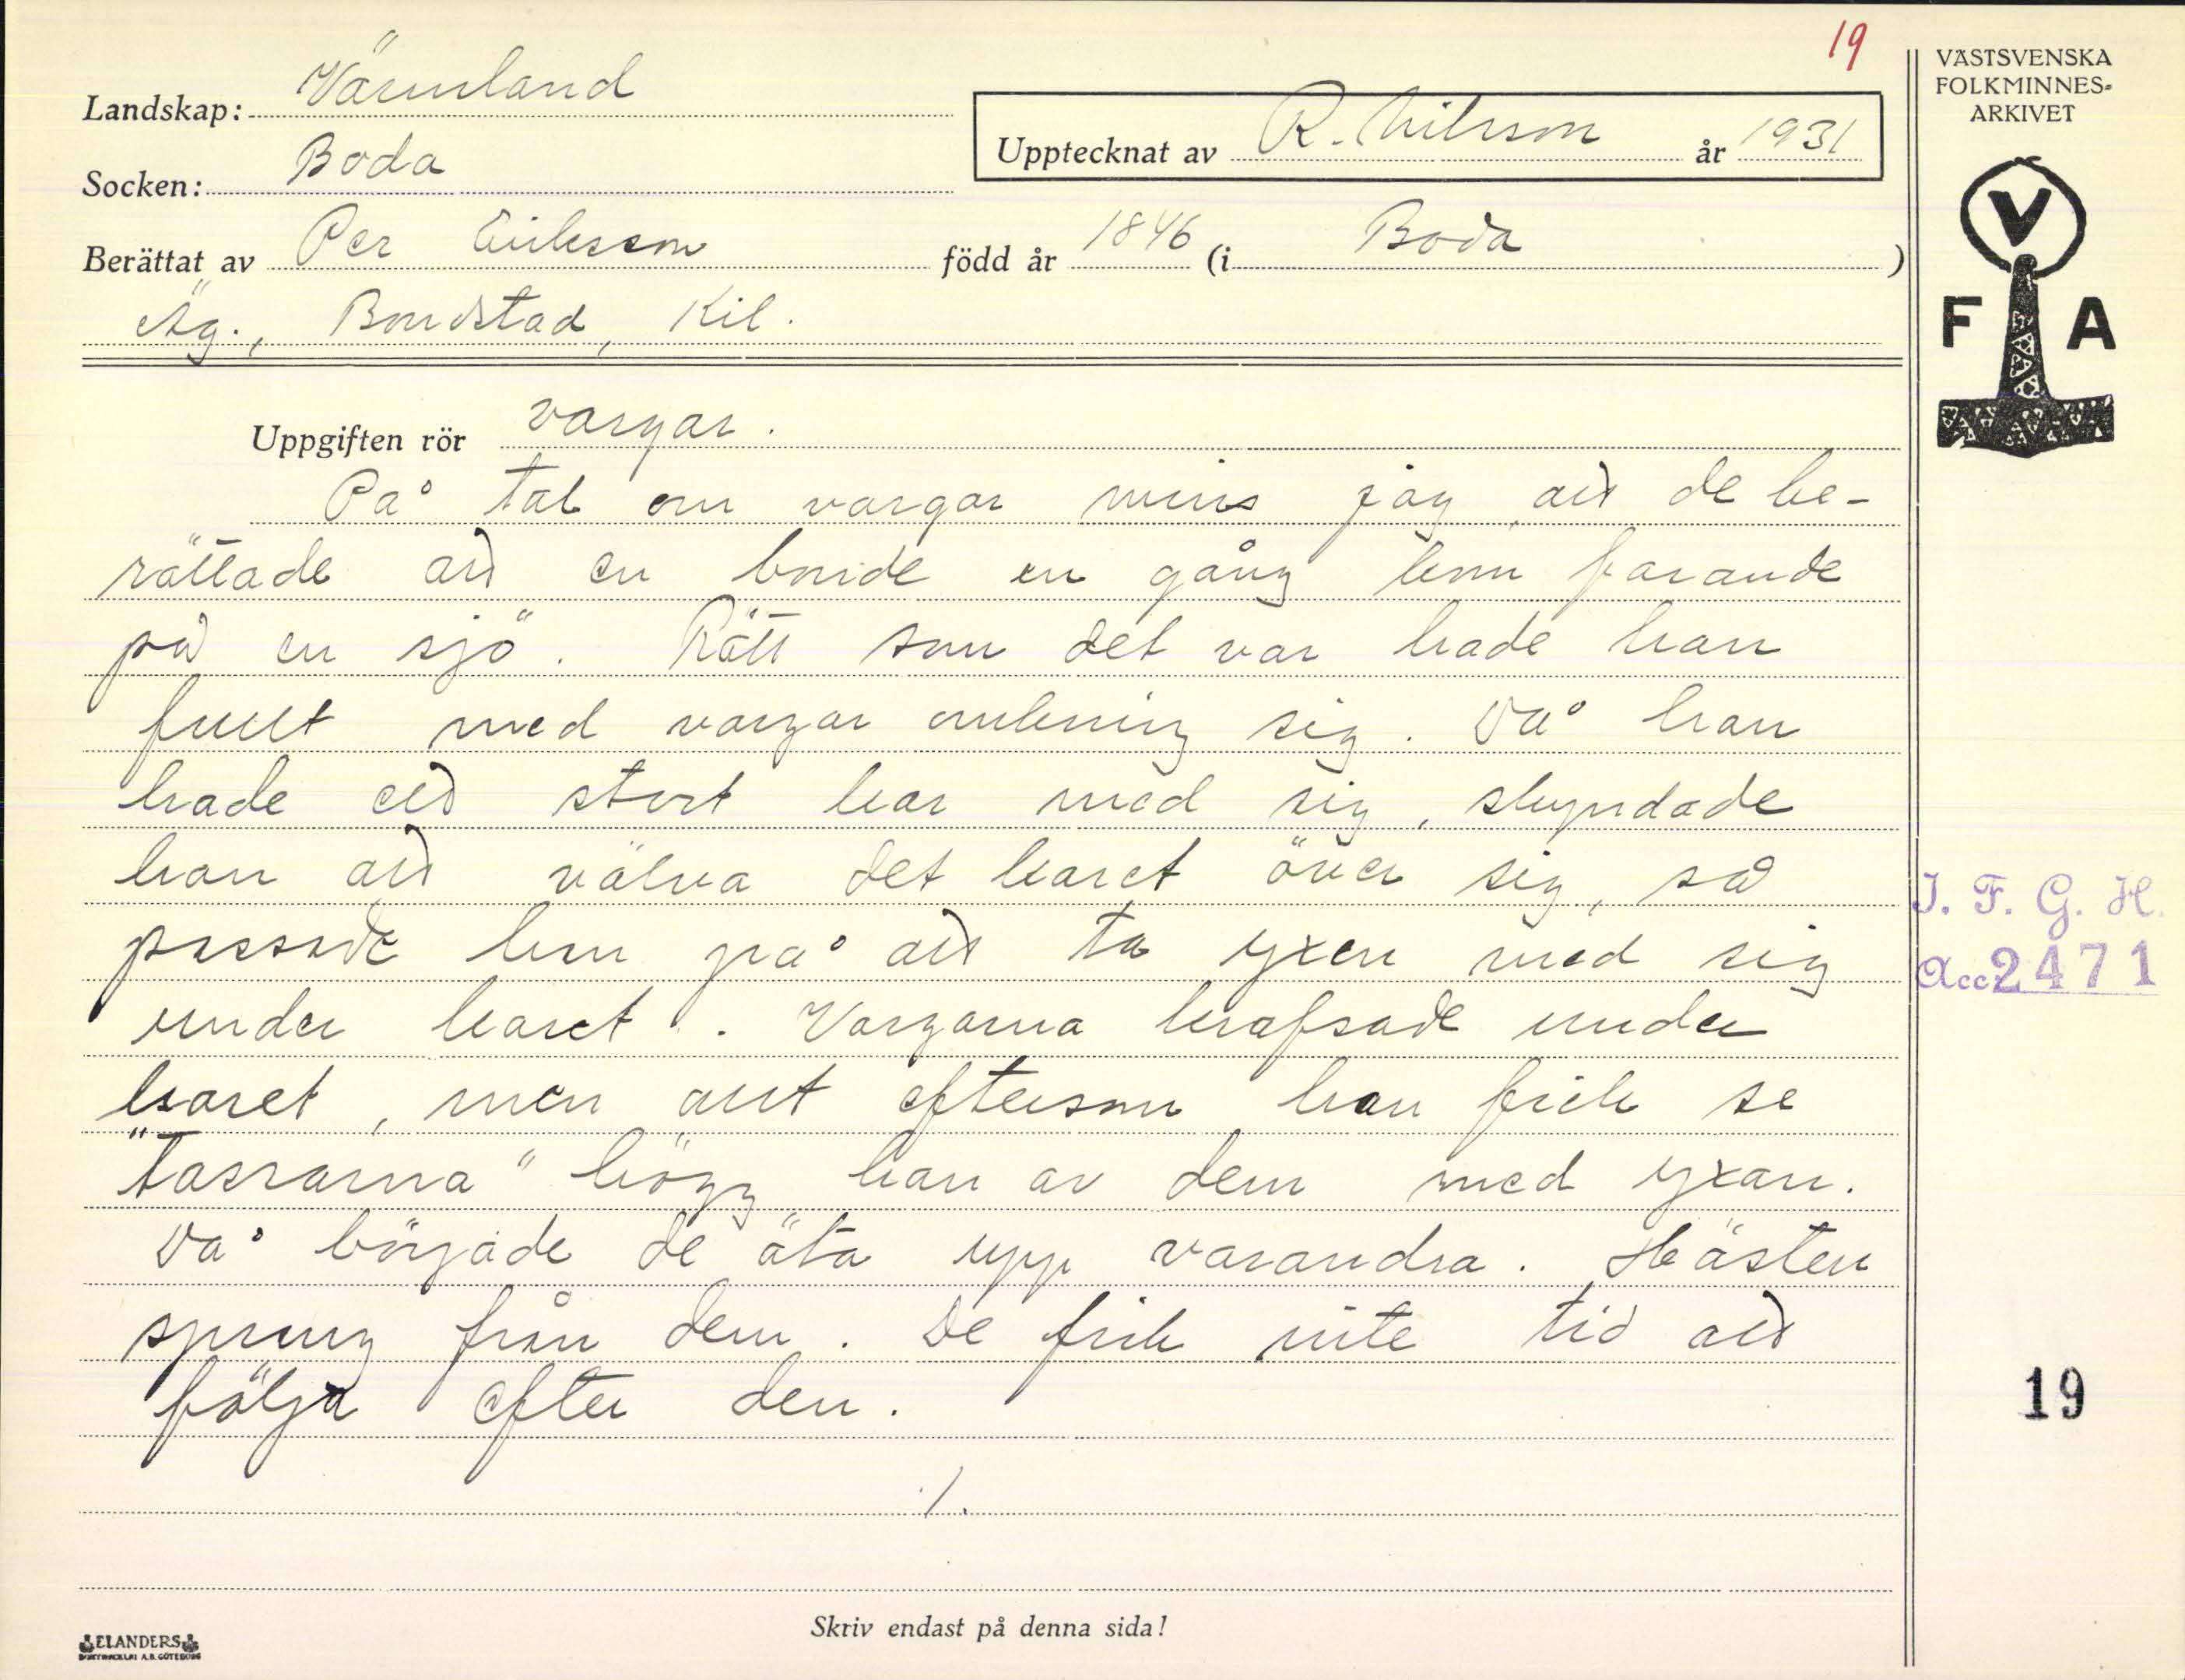 19
VÄSTSVENSKA
FOLKMINNES-
ARKIVET
Landskap: Värmland
Upptecknat av R. Nilsson år 1931
Socken: Boda
Berättat av Per Eriksson född år 1846 (i Boda)
Äg., Bondstad, Kil.
V
F A
Uppgiften rör vargar.
På tal om vargar mins jag att de be-
rättade att en bonde en gång kom farande
på en sjö. Rätt som det var hade han
fullt med vargar omkring sig. Då han
hade ett stort kar med sig, skyndade
han att välva det karet över sig, så
passade han på att ta yxen med sig
under karet. Vargarna krafsade under
karet, men allt eftersom han fick se
"tassarna" högg han av dem med yxan.
Då började de äta upp varandra. Hästen
sprung från dem. De fick inte tid att
följa efter den.
./.
I. F. G. H.
Acc 2471
19
Skriv endast på denna sida!
ELANDERS
BOKTRYCKERI A.B. GÖTEBORG